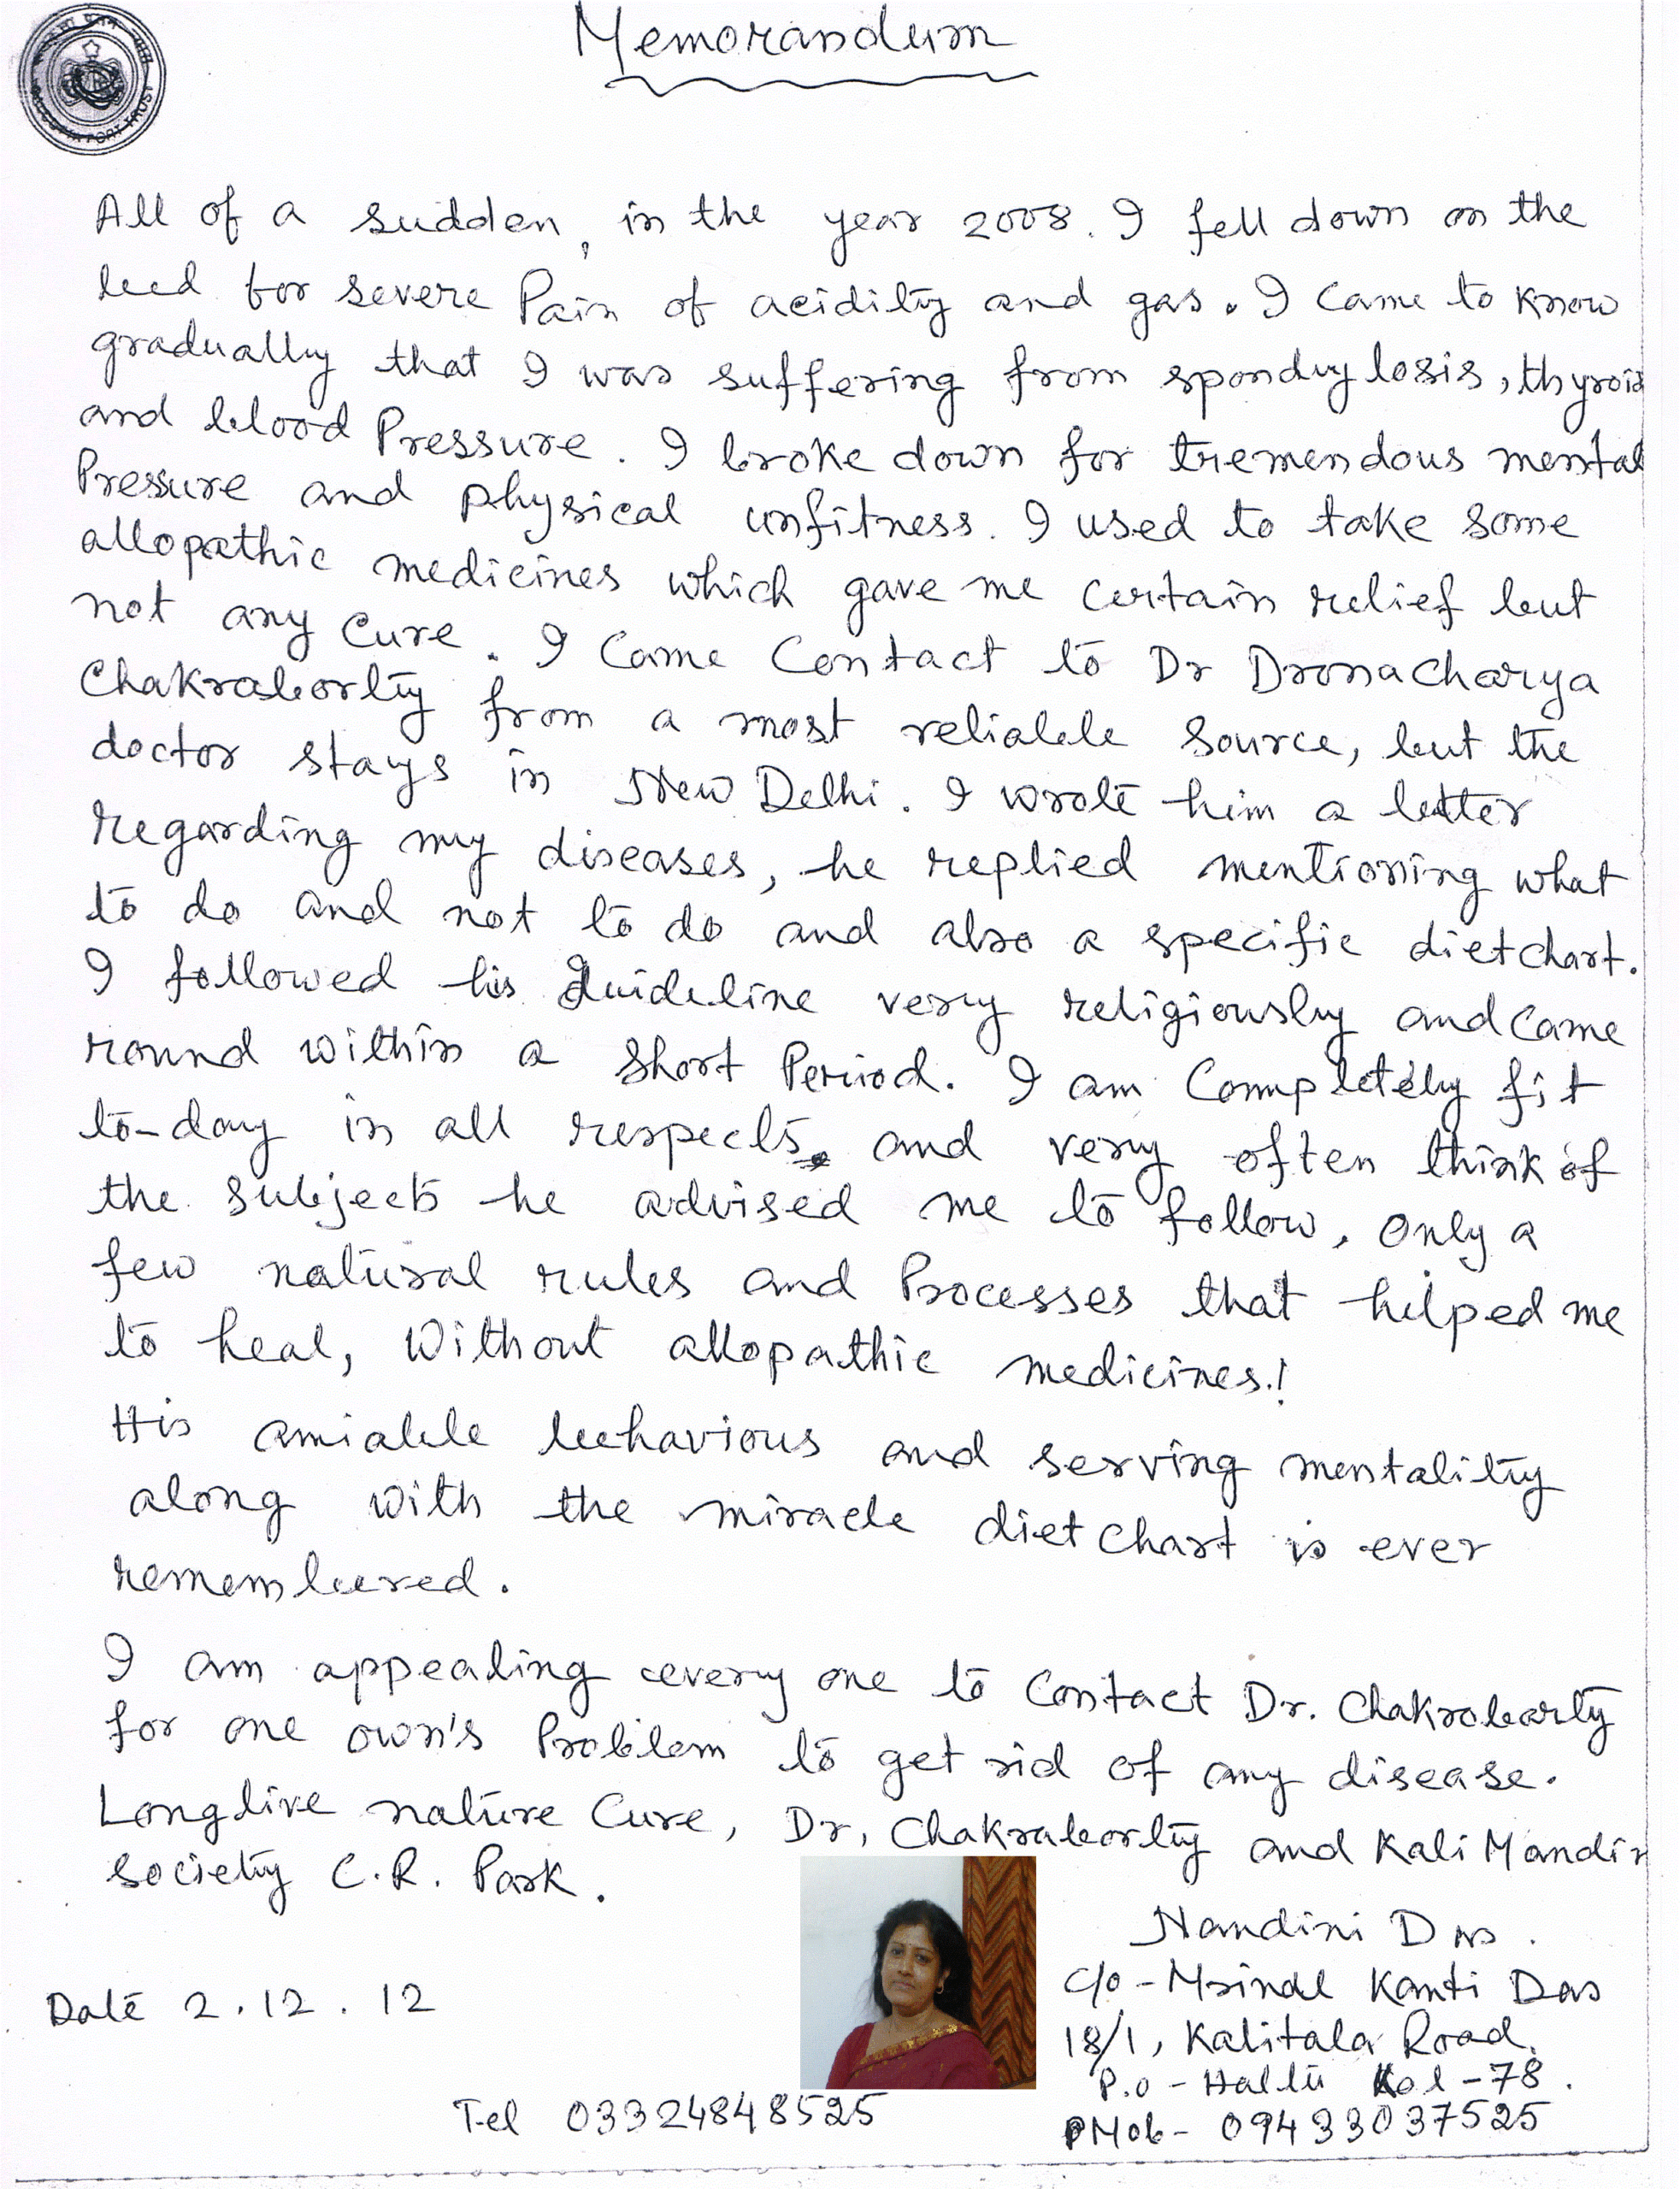 Memorandum
CALCUTTA PORT TRUST
All of a sudden, in the year 2008. I fell down on the
bed for severe Pain of acidity and gas. I came to know
gradually that I was suffering from spondylosis, thyroid
and blood Pressure. I broke down for tremendous mental
Pressure and physical unfitness. I used to take some
allopathic medicines which gave me certain relief but
not any cure. I came contact to Dr Dronacharya
Chakraborty from a most reliable source, but the
doctor stays in New Delhi. I wrote him a letter
regarding my diseases, he replied mentioning what
to do and not to do and also a specific diet chart.
I followed his Guideline very religiously and came
round within a short Period. I am completely fit
to-day in all respects, and very often think of
the subjects he advised me to follow, only a
few natural rules and Processes that helped me
to heal, without allopathic medicines.!
His amiable behavious and serving mentality
along with the miracle diet chart is ever
remembered.
I am appealing every one to contact Dr. Chakrobarty
for one own's Problem to get rid of any disease.
Longlive nature cure, Dr, Chakraborty and Kali Mandir
society C.R. Park.
Nandini Das.
C/o - Mrinal Kanti Das
18/1, Kalitala Road,
P.o - Haltu Kol - 78.
Mob - 09433037525
Date 2.12.12
Tel 03324848525